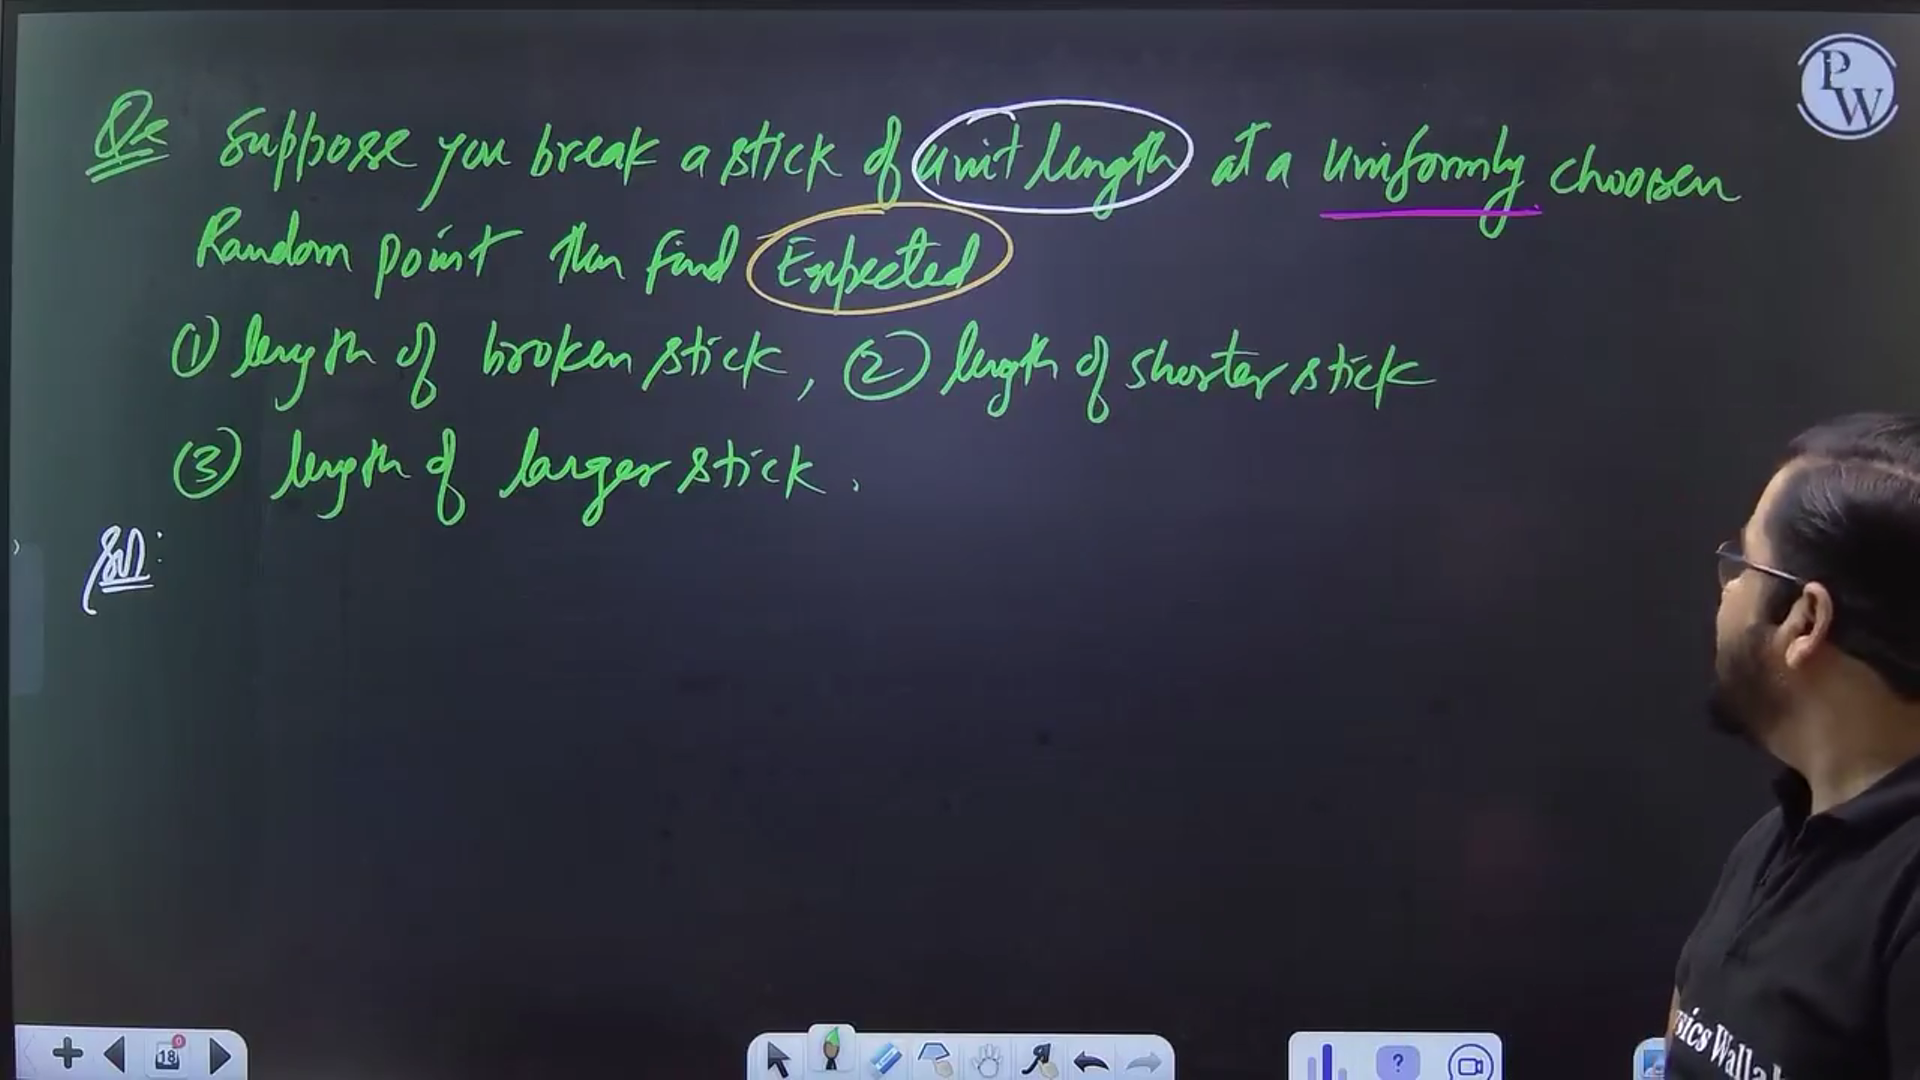 Qs Suppose you break a stick of unit length at a uniformly choosen
Random point then find Expected
① length of broken stick, ② length of shorter stick
③ length of larger stick.
Sol:
PW
18
?
sics Walla